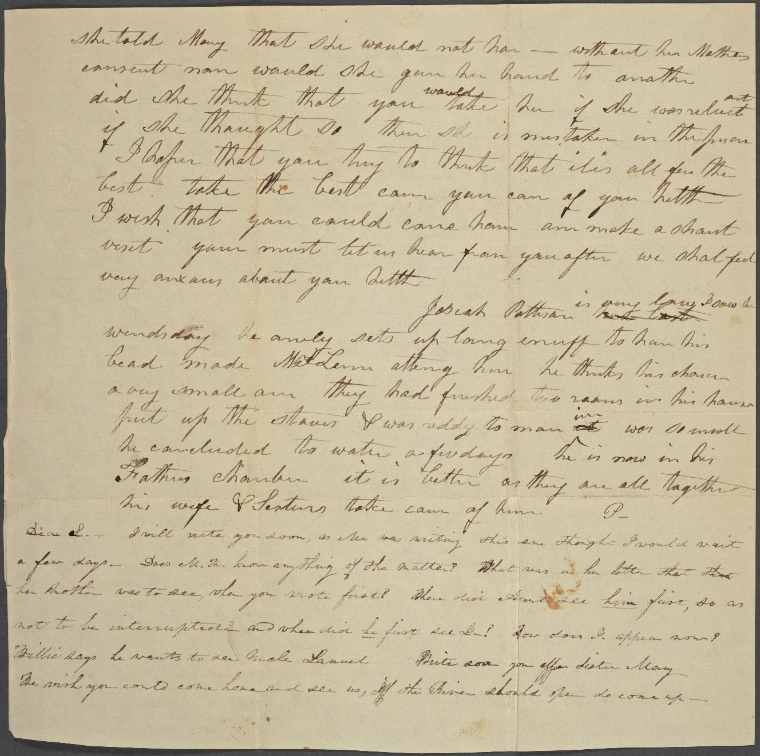 she told Mary that she would not har — without her Mothers
consent nor would she give her hand to another
did she think that you would take her if she was reluct ant
if she thought so then she is mistaken in the person
I hope that you try to think that it is all for the
best take the best care you can of you helth
I wish that you could come home am make a short
visit you must let us hear from you after we shal feel
very anxous about you helth
Josiah Pattison is very low I saw him
wendsday he only sets up long enuff to have his
bead made Mc Lenn atteng him he thinks his chance
a very small one they had finished two rooms in his house
put up the stoves & was reddy to move in was so unwell
he concluded to wate a few days he is now in his
Fathers chamber it is better as they are all together
his wife & Sisturs take care of him P—
Dear L. — I will write you soon, as Ma was writing this one thought I would wait
a few days — Does M. M. know anything of the matter? What was in her letter that
her Mother was to see, when you wrote first? Where did Aunt see him first, so as
not to be interrupted and when did he first see L? How does L. appear now?
Willie says he wants to see Uncle Lamuel Write soon you affn sister Mary
We wish you could come home and see us, If the River should open do come up —